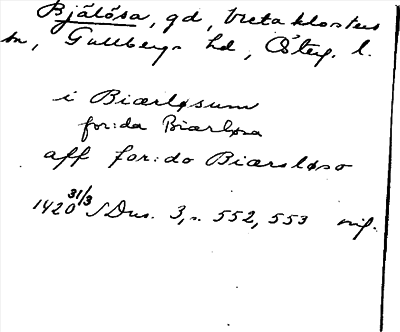 Bjälösa, gd, Vreta klosters
sn, Gullbergs hd, Österg. l.
i Biærløsum
for:da Biærløsa
aff for:do Biærsløso
1420 31/3 SDns. 3, s. 552, 553